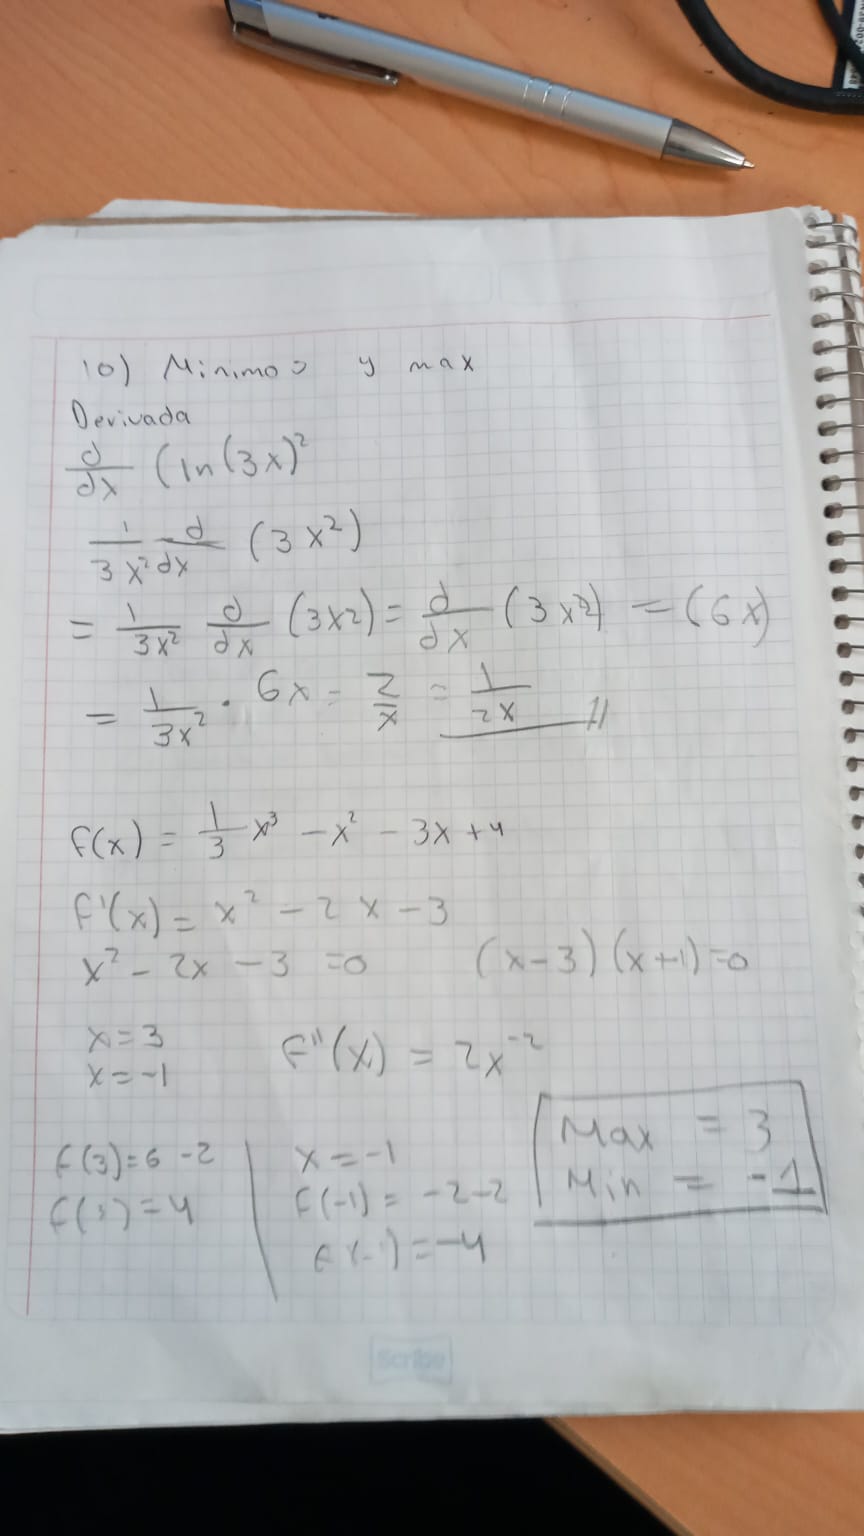 10) Minimos y max
Derivada
d/dx (ln(3x)²
1/3x² d/dx (3x²)
= 1/3x² d/dx (3x2) = d/dx (3x²) = (6x)
= 1/3x² · 6x = 2/x = 1/2x //
f(x) = 1/3 x³ - x² - 3x + 4
f'(x) = x² - 2x - 3
x² - 2x - 3 = 0 (x-3)(x+1)=0
x = 3
x = -1
f''(x) = 2x⁻²
f(3)=6-2
f(3)=4
x = -1
f(-1) = -2-2
f(-1) = -4
Max = 3
Min = -1
Scribe